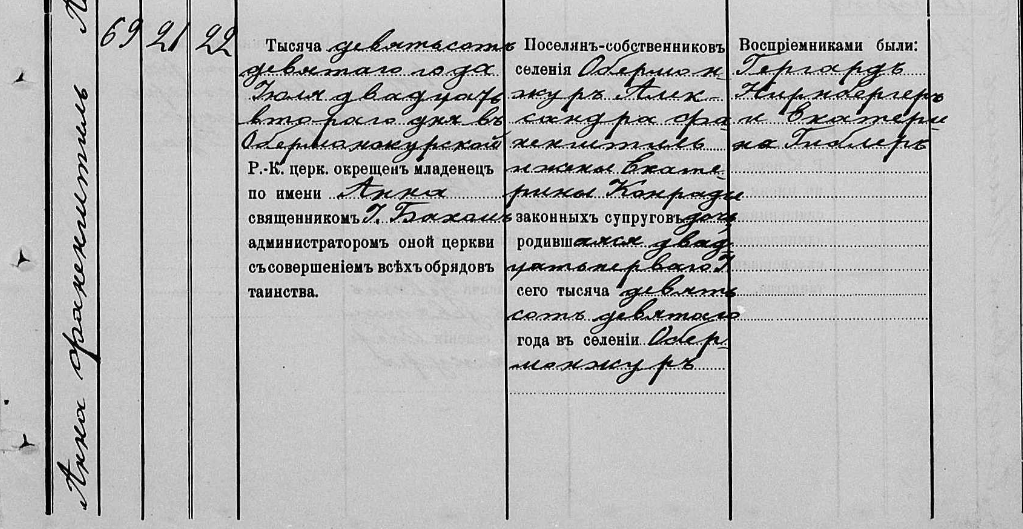 Анна Франкенштиль
69 21 22
Тысяча девятьсотъ
девятаго года
Іюля двадцать
втораго дня въ
Обермонжурской
Р.-К. церк. окрещенъ младенец
по имени Анна
священникомъ І. Бахомъ
администраторомъ оной церкви
съ совершеніемъ всѣхъ обрядовъ
таинства.
Поселянъ-собственниковъ
селенія Обермон
журъ Алек-
сандра Фра-
ненштиль
и жены Екате-
рины Конради
законныхъ супруговъ дочь,
родившаяся двад
цать перваго
сего тысяча девять
сотъ девятаго
года въ селеніи Обер-
монжуръ
Воспріемниками были:
Гергардъ
Нирнбергеръ
и Екатери
на Гиблеръ